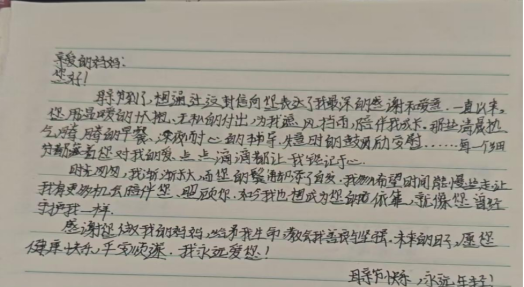 亲爱的妈妈:
您好!
母亲节到了,想通过这封信向您表达了我最深的感谢和爱意。一直以来,
您用最暖的怀抱、无私的付出,为我遮风挡雨,陪伴我成长。那些清晨热
气腾腾的早餐、深夜耐心的辅导、失意时的鼓励安慰……每一个细
节都藏着您对我的爱,点点滴滴都让我铭记于心。
时光匆匆,我渐渐长大,而您的鬓角却添了白发。我多么希望时间能慢些走,让
我有更多机会去陪伴您、照顾你,如今我也想成为您的依靠,就像您曾经
守护我一样。
感谢您做我的妈妈,给予我生命,教会我善良与坚强。未来的日子,愿您
健康快乐,平安顺遂,我永远爱您!
母亲节快乐,永远年轻!